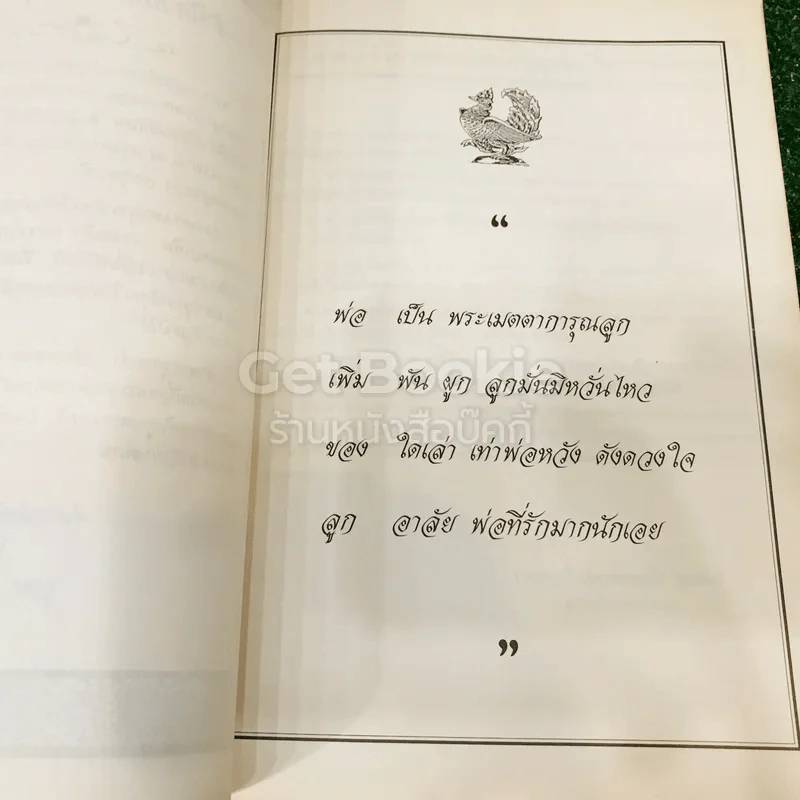 “
พ่อ เป็น พระเมตตาการุณลูก
เพิ่ม พัน ผูก ลูกมั่นมิหวั่นไหว
Get Bookie
ร้านหนังสือบุ๊คกี้
ของ ใดเล่า เท่าพ่อหวัง ดังดวงใจ
ลูก อาลัย พ่อที่รักมากนักเอย
”